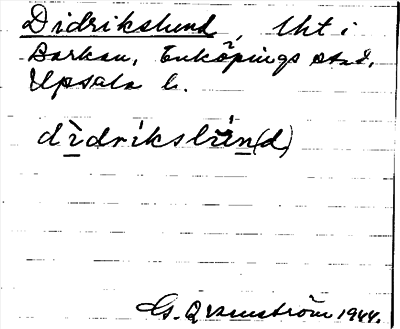 Didrikslund, lht i
Barkan, Enköpings stad,
Upsala l.
didrikslun(d)
G. Qvarnström 1944.